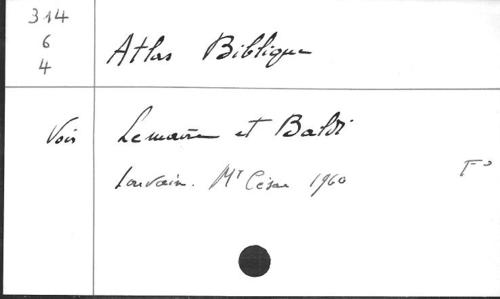 314
6
4
Atlas Biblique
Voir Lemaire et Baldi
Louvain. Mt César 1960
Fo